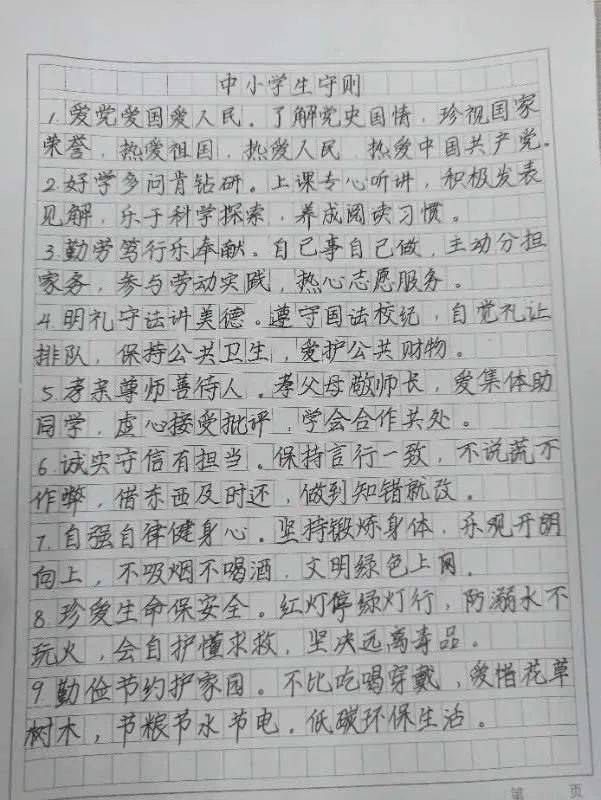 中小学生守则
1.爱党爱国爱人民。了解党史国情，珍视国家
荣誉，热爱祖国，热爱人民，热爱中国共产党。
2.好学多问肯钻研。上课专心听讲，积极发表
见解，乐于科学探索，养成阅读习惯。
3.勤劳笃行乐奉献。自己事自己做，主动分担
家务，参与劳动实践，热心志愿服务。
4.明礼守法讲美德。遵守国法校纪，自觉礼让
排队，保持公共卫生，爱护公共财物。
5.孝亲尊师善待人。孝父母敬师长，爱集体助
同学，虚心接受批评，学会合作共处。
6.诚实守信有担当。保持言行一致，不说谎不
作弊，借东西及时还，做到知错就改。
7.自强自律健身心。坚持锻炼身体，乐观开朗
向上，不吸烟不喝酒，文明绿色上网。
8.珍爱生命保安全。红灯停绿灯行，防溺水不
玩火，会自护懂求救，坚决远离毒品。
9.勤俭节约护家园。不比吃喝穿戴，爱惜花草
树木，节粮节水节电。低碳环保生活。
第 页